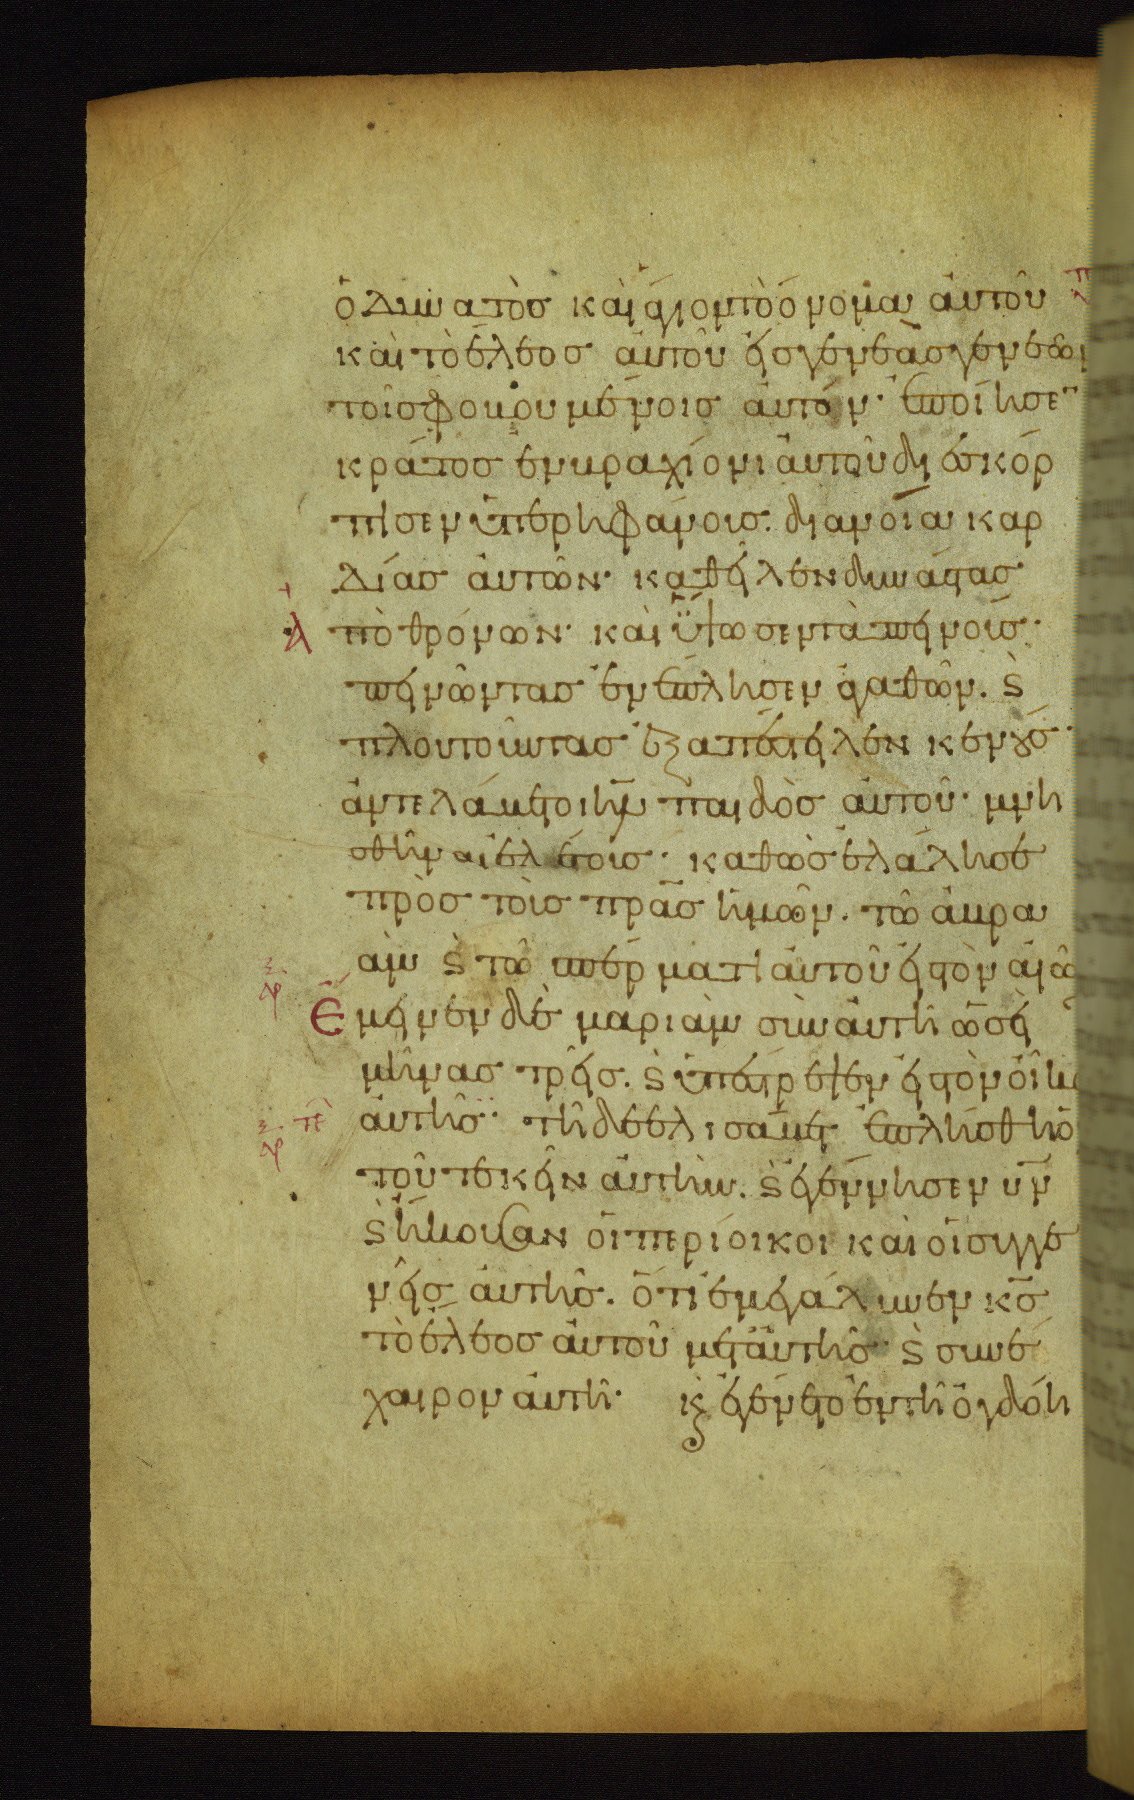 ὁ δυνατὸς καὶ ἅγιον τὸ ὄνομα αὐτοῦ
καὶ τὸ ἔλεος αὐτοῦ εἰς γενεὰς γενεῶν
τοῖς φοβουμένοις αὐτόν· ἐποίησε
κράτος ἐν βραχίονι αὐτοῦ διεσκόρ
πισεν ὑπερηφάνους· διανοία καρ
δίας αὐτῶν· καθεῖλεν δυνάστας
ἀπὸ θρόνων· καὶ ὕψωσεν ταπεινούς·
πεινῶντας ἐνέπλησεν ἀγαθῶν. ϛ
πλουτοῦντας ἐξαπέστειλεν κενούς·
ἀντελάβετο ιηλ παιδὸς αὐτοῦ· μνη
σθῆναι ἐλέους· καθὼς ἐλάλησε
πρὸς τοὺς πρας ἡμῶν. τῶ ἀβρα
ὰμ ϛ τῶ σπέρματι αὐτοῦ ἕως αἰῶ
Ἔμεινεν δὲ μαριὰμ σὺν αὐτῆ ὡσεὶ
μῆνας τρεῖς. ϛ ὑπέστρεψεν εἰς τὸν οἶκο
αὐτῆς· τῆ δὲ ἐλισάβετ ἐπλήσθη ὁ
τοῦ τεκεῖν αὐτήν. ϛ ἐγέννησεν υν
ϛ ἤκουσαν οἱ περίοικοι καὶ οἱ συγγε
νεῖς αὐτῆς. ὅτι ἐμεγάλυνεν κς
τὸ ἔλεος αὐτοῦ μετ' αὐτῆς· ϛ συνέ
χαιρον αὐτῆ· κ ἐγένετο ἐν τῆ ὀγδόη